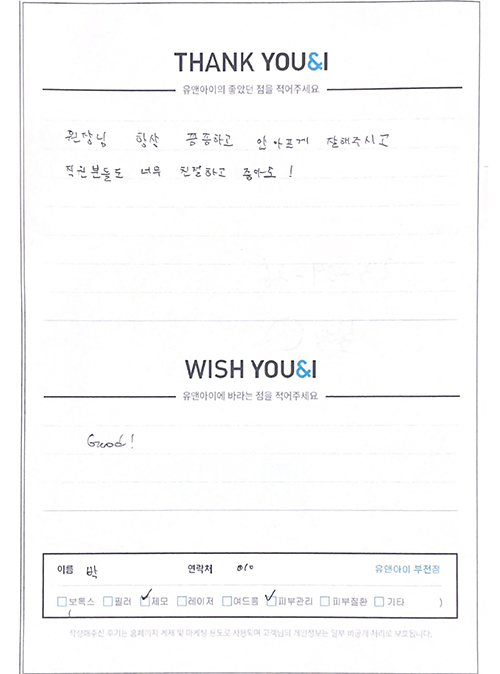 THANK YOU&I
유앤아이의 좋았던 점을 적어주세요
원장님 항상 꼼꼼하고 안아프게 잘해주시고
직원분들도 너무 친절하고 좋아요!
WISH YOU&I
유앤아이에 바라는 점을 적어주세요
Good!
이름 박 연락처 010 유앤아이 부전점
보톡스 필러 제모 레이저 여드름 피부관리 피부질환 기타 )
(
작성해주신 후기는 홈페이지 게재 및 마케팅 용도로 사용되며 고객님의 개인정보는 일부 비공개 처리로 보호됩니다.